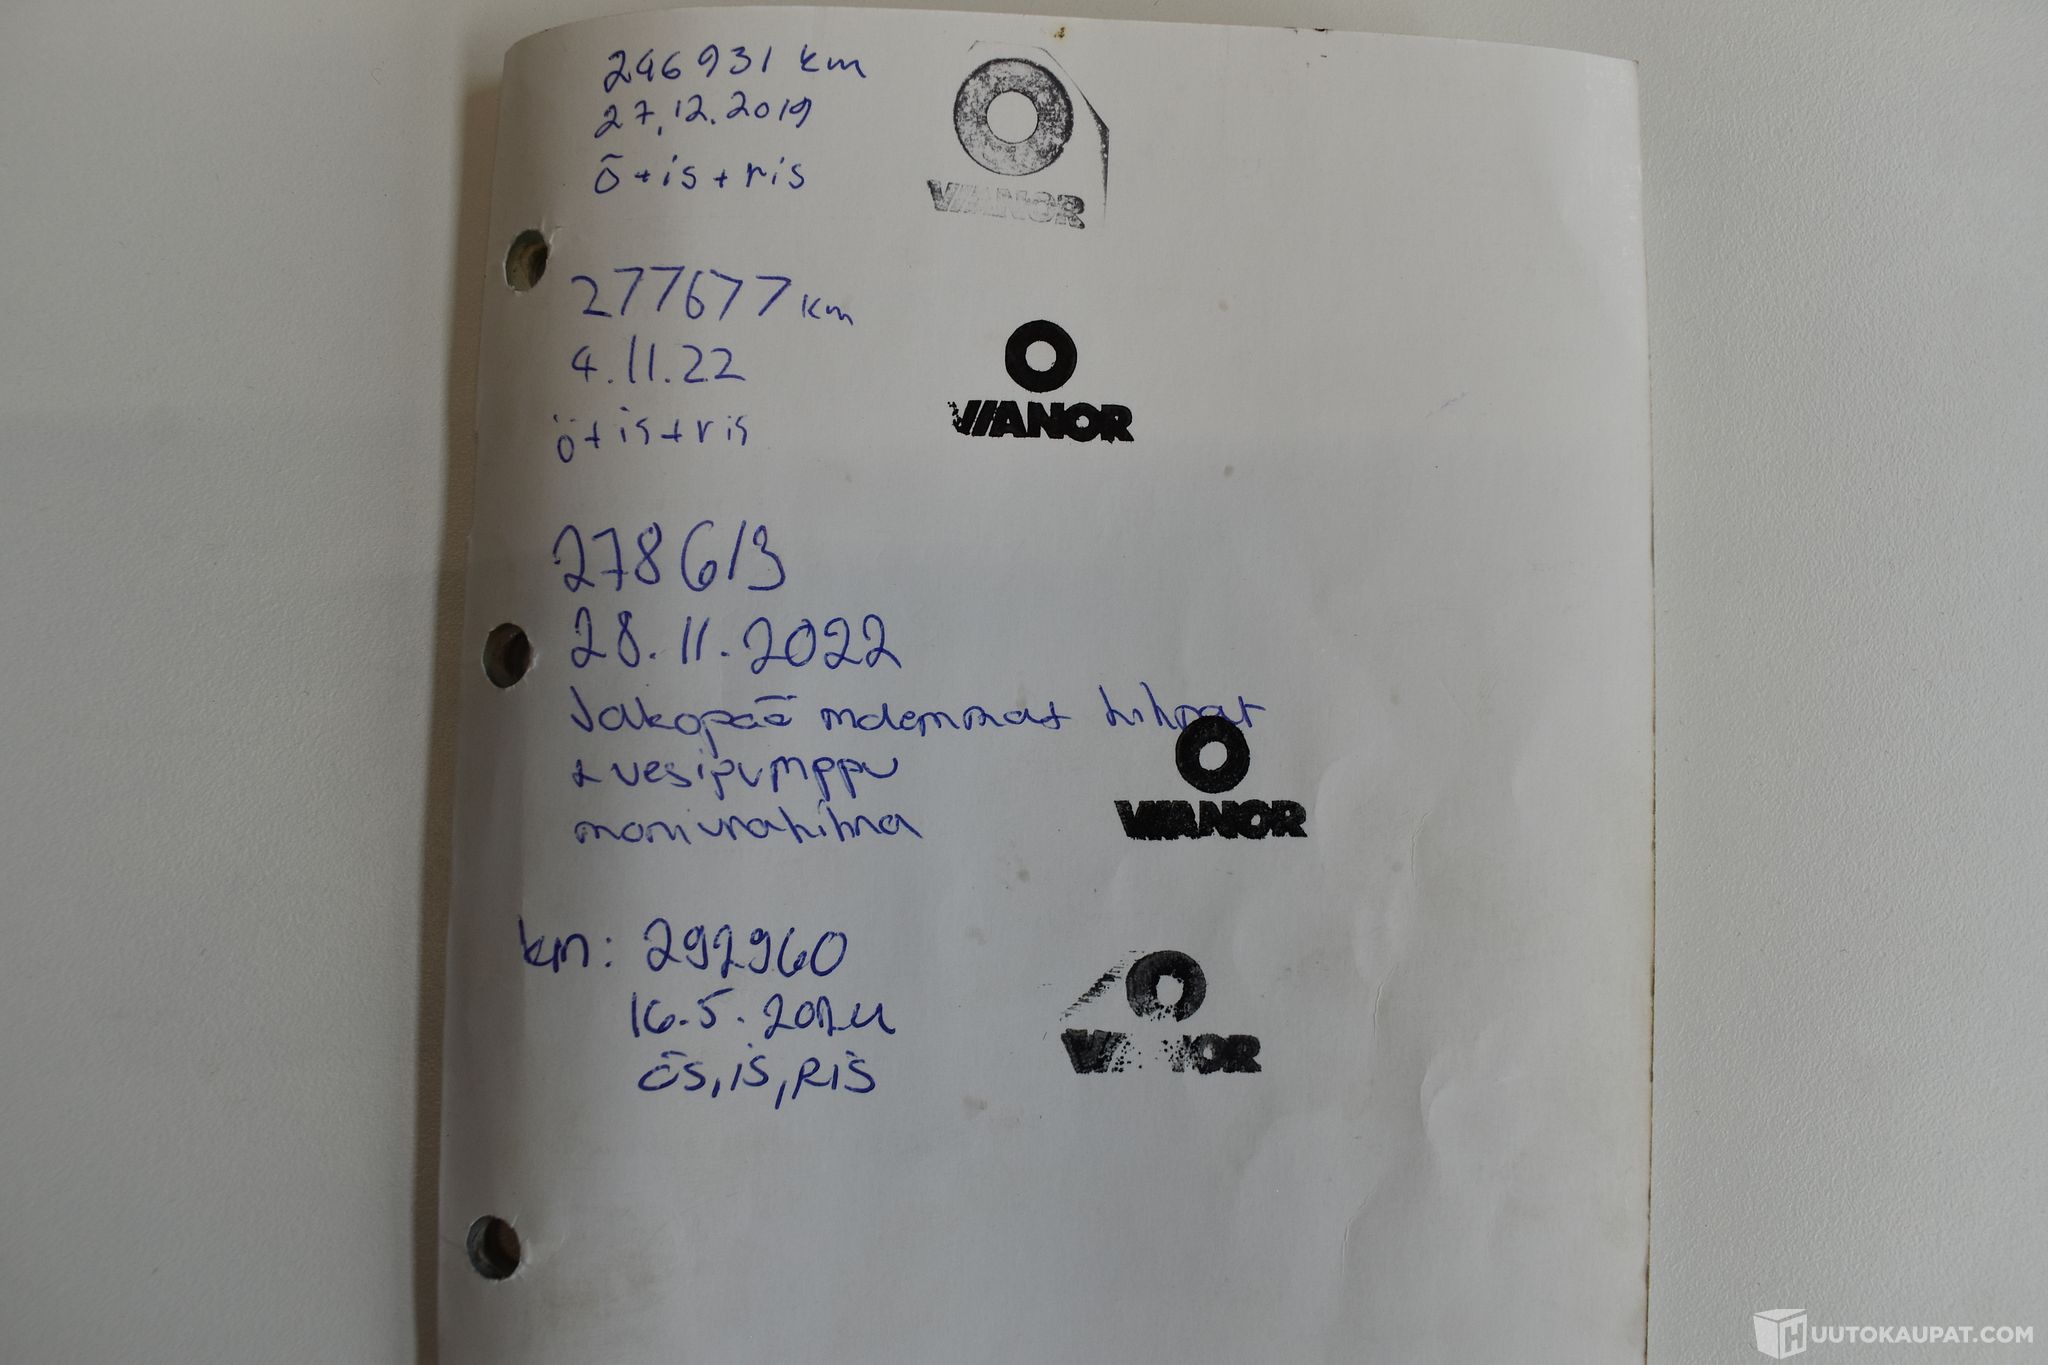 246931 km
27.12.2019
ö+is+ris
VIANOR
277677 km
4.11.22
ö+is+ris
VIANOR
278613
28.11.2022
Jakopää molemmat hihnat
+ vesipumppu
moniurahihna
VIANOR
km: 292960
16.5.2024
ös, is, RIS
VIANOR
HUUTOKAUPAT.COM